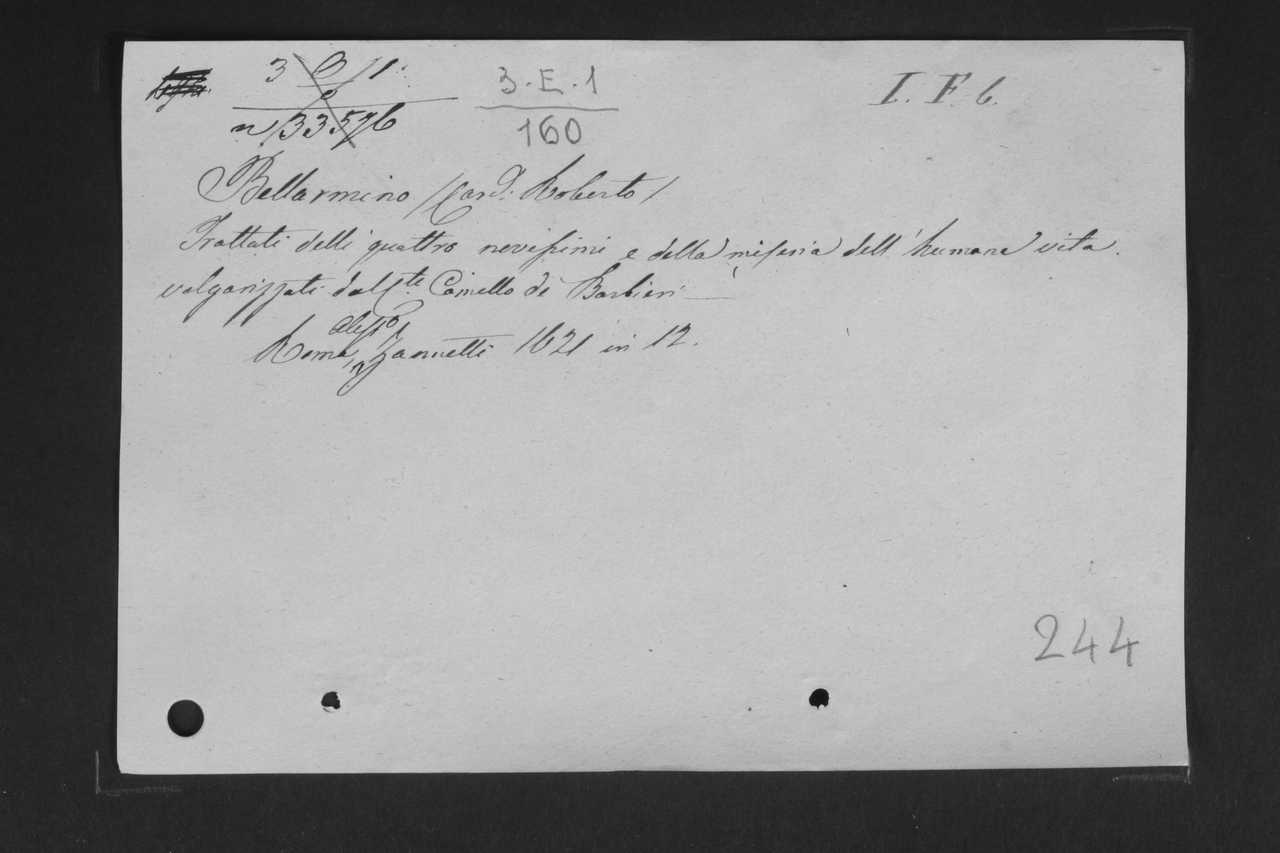 3 B / 1.
3.E.1
I. F. 6.
n 33576
160
Bellarmino / Card. Roberto /
Trattati delli quattro novissimi e della miseria dell' humana vita.
volgarizzati dal Cte Camillo de Barbieri
Roma, Aless.o Zannetti 1621 in 12.
244